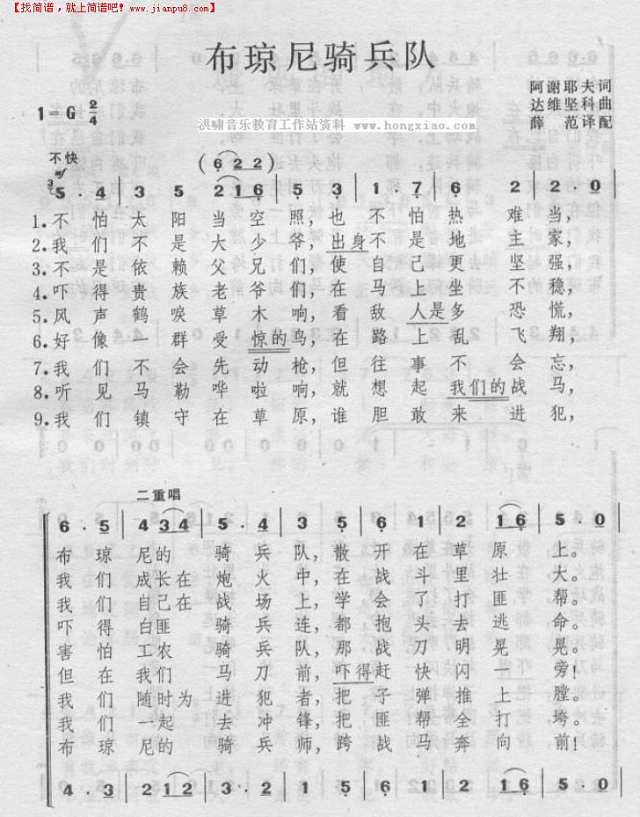 【找简谱，就上简谱吧! www.jianpu8.com】
布琼尼骑兵队
阿谢耶夫词
达维坚科曲
薛范译配
1=G 2/4
洪啸音乐教育工作站资料 www.hongxiao.com
不快
mf
(6 2 2)
3/5·4 3 5 2 1 6 5 3 1·7 6 2 2·0
1.不怕太阳当空照，也不怕热难当，
2.我们不是大少爷，出身不是地主家，
3.不是依赖父兄们，使自己更坚强，
4.吓得贵族老爷们，在马上坐不稳，
5.风声鹤唳草木响，看敌人是多恐慌，
6.好像一群受惊的鸟，在路上乱飞翔，
7.我们不会先动枪，但往事不会忘，
8.听见马勒哗啦响，就想起我们的战马，
9.我们镇守在草原，谁胆敢来进犯，
二重唱
6·5 4 3 4 5·4 3 3 5 6 1 2 1 6 5·0
布琼尼的骑兵队，散开在草原上。
我们成长在炮火中，在战斗里壮大。
我们自己在战场上，学会了打匪帮。
吓得白匪骑兵连，都抱头去逃命。
害怕工农骑兵队，那战刀明晃晃。
但在我们马刀前，吓得赶快闪旁！
我们随时为进犯者，把子弹推上膛。
我们一起去冲锋，把匪帮全打垮。
布琼尼的骑兵师，跨战马奔向前！
4·3 2 1 2 3·2 1 1 3 4 1 2 1 6 5·0